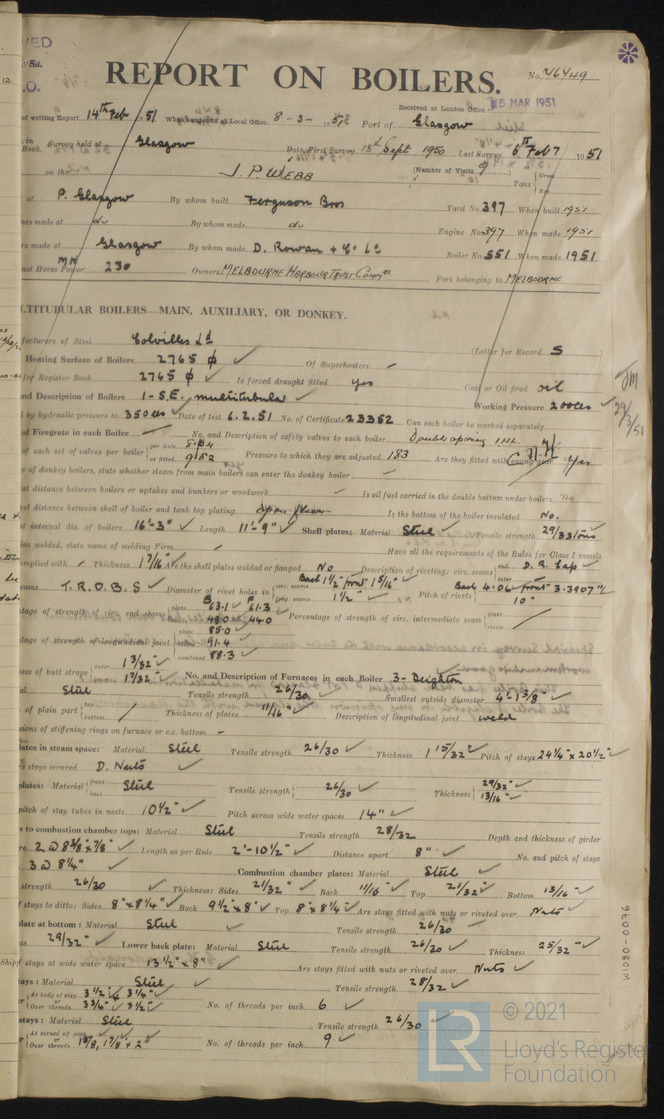 REPORT ON BOILERS.
No. 46449
Received at London Office 15 MAR 1951
of writing Report 14th Feb 1951 When handed in at Local Office 8-3- Port of Glasgow
Survey held at Glasgow Date, First Survey 18th Sept 1950 Last Survey 6th Feb 1951
on the J. P. WEBB (Number of Visits 9) Tons Gross Net
at P. Glasgow By whom built Ferguson Bros Yard No. 397 When built 1951
made at do By whom made do Engine No. 397 When made 1951
made at Glasgow By whom made D. Rowan & Co Ld Boiler No. 551 When made 1951
Horse Power 230 Owners MELBOURNE HARBOUR TRUST Port belonging to MELBOURNE
MULTITUBULAR BOILERS MAIN, AUXILIARY, OR DONKEY.
of Steel Colvilles Ld (Letter for Record S
Heating Surface of Boilers 2765 Of Superheaters
for Register Book 2765 Is forced draught fitted yes Coal or Oil fired oil
and Description of Boilers 1-S.E. multitubular Working Pressure 200
by hydraulic pressure to 350 Date of test 6.2.51 No. of Certificate 23352 Can each boiler be worked separately
of Firegrate in each Boiler No. and Description of safety valves to each boiler Double spring
of each set of valves per boiler per Rule as fitted 9.82 Pressure to which they are adjusted 183 Are they fitted with easing gear yes
of donkey boilers, state whether steam from main boilers can enter the donkey boiler
distance between boilers or uptakes and bunkers or woodwork Is oil fuel carried in the double bottom under boilers No
distance between shell of boiler and tank top plating Is the bottom of the boiler insulated No.
internal dia. of boilers 16'-3" Length 11'-9" Shell plates: Material Steel Tensile strength 29/33 tons
welded, state name of welding Firm Have all the requirements of the Rules for Class I vessels
complied with Thickness 1 7/16 Are the shell plates welded or flanged No Description of riveting: circ. seams end D. R. Lap
T.R.D.B.S Diameter of rivet holes in circ. seams Back 1 1/2" front 1 9/16" long. seams 1 1/2" Pitch of rivets Back 4.04 front 3.3907" 10"
of strength of circ. end seams plate 63.1 61.3 rivets 48.0 44.0 Percentage of strength of circ. intermediate seam plate rivets
of strength of longitudinal joint plate 85.0 rivets 91.4 combined 88.3
of butt straps outer 1 3/32" inner 1 7/32" No. and Description of Furnaces in each Boiler 3- Deighton
Steel Tensile strength 26/30 Smallest outside diameter 4'-1 3/8"
of plain part top bottom Thickness of plates 11/16" Description of longitudinal joint weld
of stiffening rings on furnace or c.c. bottom
in steam space: Material Steel Tensile strength 26/30 Thickness 1 15/32" Pitch of stays 24 1/4" x 20 1/2"
stays secured D. Nuts
plates: Material front back Steel Tensile strength 26/30 Thickness 29/32" 13/16"
pitch of stay tubes in nests 10 1/2" Pitch across wide water spaces 14"
to combustion chamber tops: Material Steel Tensile strength 28/32 Depth and thickness of girder
2 @ 8 3/8" x 7/8" Length as per Rule 2'-10 1/2" Distance apart 8" No. and pitch of stays
3 @ 8 1/4" Combustion chamber plates: Material Steel
strength 26/30 Thickness: Sides 21/32" Back 11/16" Top 21/32" Bottom 13/16"
stays to ditto: Sides 8" x 8 1/4" Back 9 1/2" x 8" Top 8" x 8 1/4" Are stays fitted with nuts or riveted over Nuts
plate at bottom: Material Steel Tensile strength 26/30
29/32" Lower back plate: Material Steel Tensile strength 26/30 Thickness 25/32"
stays at wide water space 13 1/2" x 8" Are stays fitted with nuts or riveted over Nuts
stays: Material Steel Tensile strength 28/32
At body of stay 3 1/2" & 3 1/4" Over threads 3 3/4" 3 1/2" No. of threads per inch 6
stays: Material Steel Tensile strength 26/30
At turned off part Over threads 1 5/8, 1 7/8 & 2" No. of threads per inch 9
W1080-0076
© 2021
Lloyd's Register
Foundation